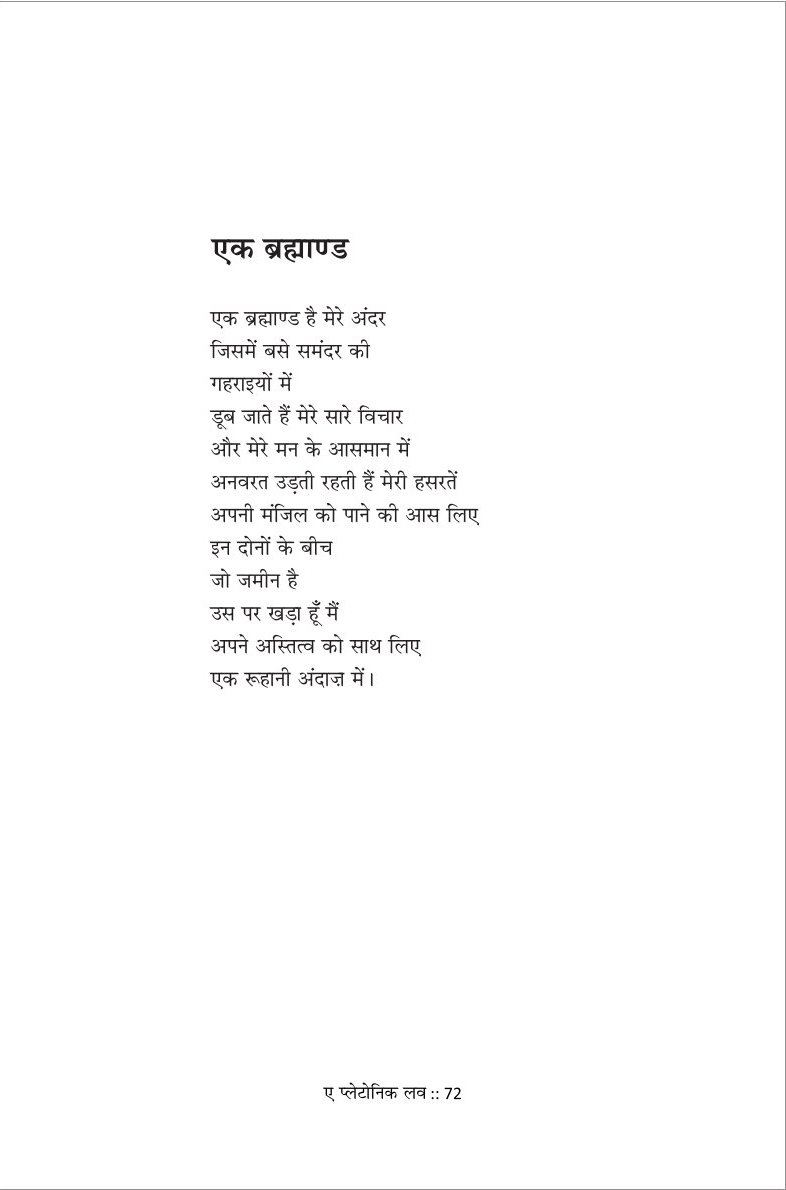 एक ब्रह्माण्ड
एक ब्रह्माण्ड है मेरे अंदर
जिसमें बसे समंदर की
गहराइयों में
डूब जाते हैं मेरे सारे विचार
और मेरे मन के आसमान में
अनवरत उड़ती रहती हैं मेरी हसरतें
अपनी मंजिल को पाने की आस लिए
इन दोनों के बीच
जो जमीन है
उस पर खड़ा हूँ मैं
अपने अस्तित्व को साथ लिए
एक रूहानी अंदाज़ में।
ए प्लेटोनिक लव :: 72